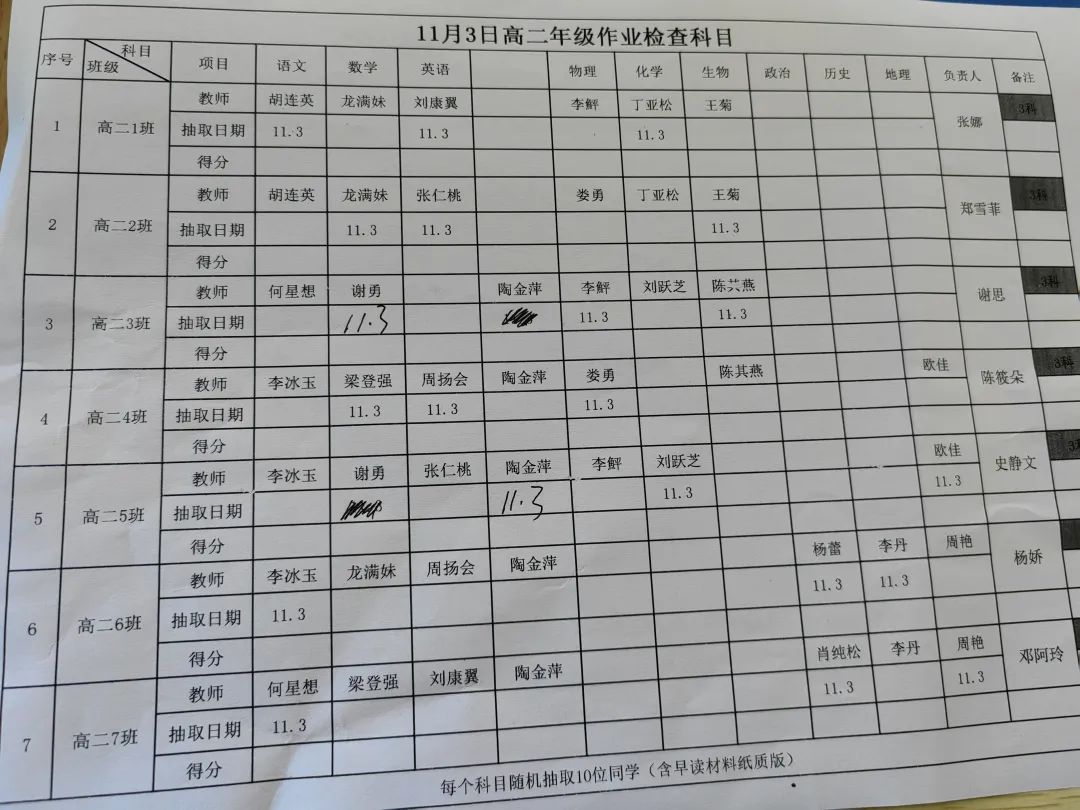 11月3日高二年级作业检查科目
序号 科目 班级 项目 语文 数学 英语 物理 化学 生物 政治 历史 地理 负责人 备注
1 高二1班 教师 胡连英 龙满妹 刘康翼 李鲆 丁亚松 王菊 张娜 3科
抽取日期 11.3 11.3 11.3
得分
2 高二2班 教师 胡连英 龙满妹 张仁桃 娄勇 丁亚松 王菊 郑雪菲 3科
抽取日期 11.3 11.3 11.3
得分
3 高二3班 教师 何星想 谢勇 陶金萍 李鲆 刘跃芝 陈其燕 谢思 3科
抽取日期 11.3 11.3 11.3
得分
4 高二4班 教师 李冰玉 梁登强 周扬会 陶金萍 娄勇 陈其燕 欧佳 陈筱朵 3科
抽取日期 11.3 11.3 11.3
得分
5 高二5班 教师 李冰玉 谢勇 张仁桃 陶金萍 李鲆 刘跃芝 欧佳 史静文 3科
抽取日期 11.3 11.3 11.3
得分
6 高二6班 教师 李冰玉 龙满妹 周扬会 陶金萍 杨蕾 李丹 周艳 杨娇
抽取日期 11.3 11.3 11.3
得分
7 高二7班 教师 何星想 梁登强 刘康翼 陶金萍 肖纯松 李丹 周艳 邓阿玲
抽取日期 11.3 11.3 11.3
得分
每个科目随机抽取10位同学（含早读材料纸质版）